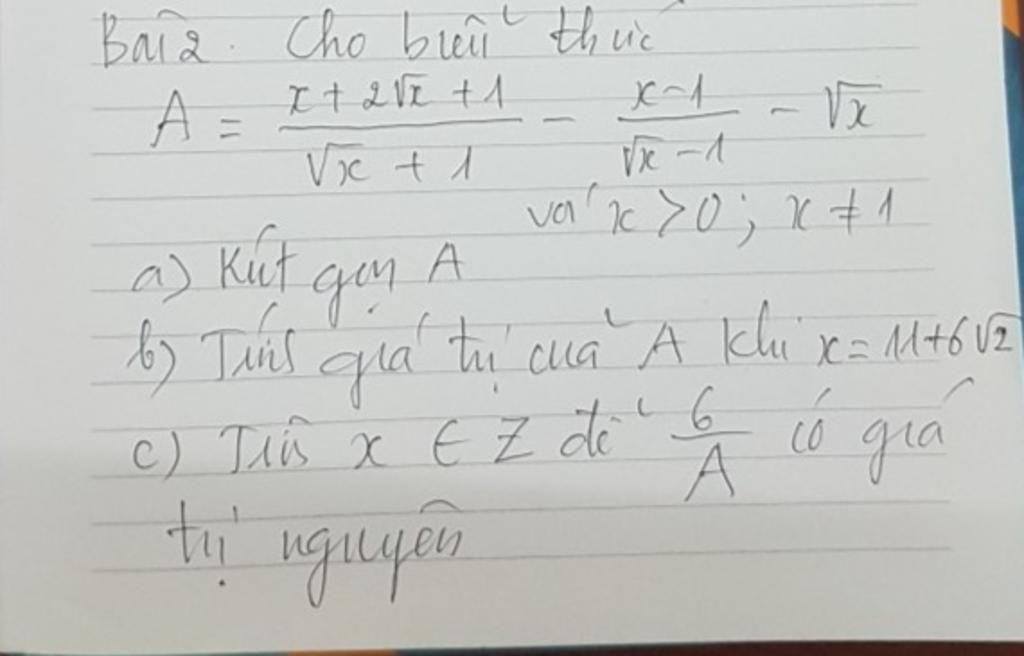 Bài 2. Cho biểu thức
A = \frac{x + 2\sqrt{x} + 1}{\sqrt{x} + 1} - \frac{x - 1}{\sqrt{x} - 1} - \sqrt{x}
với x > 0; x ≠ 1
a) Rút gọn A
b) Tính giá trị của A khi x = 11 + 6\sqrt{2}
c) Tìm x ∈ Z để \frac{6}{A} có giá
trị nguyên